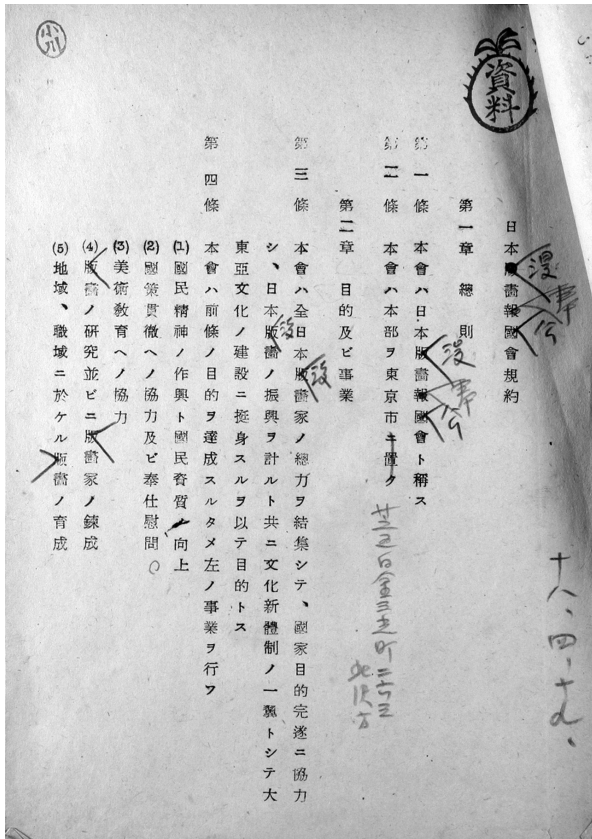 資料
日本版畫報國會規約
漫
奉
公
第一章 總則
第一條 本會ハ日本版畫報國會ト稱ス
漫
奉
公
第二條 本會ハ本部ヲ東京市ニ置ク
芝区白金三光町二六三
北沢方
第二章 目的及ビ事業
第三條 本會ハ全日本版畫家ノ總力ヲ結集シテ、國家目的完遂ニ協力
漫
シ、日本版畫ノ振興ヲ計ルト共ニ文化新體制ノ一翼トシテ大
漫
東亞文化ノ建設ニ挺身スルヲ以テ目的トス
第四條 本會ハ前條ノ目的ヲ達成スルタメ左ノ事業ヲ行フ
(1) 國民精神ノ作興ト國民資質ノ向上
(2) 國策貫徹ヘノ協力及ビ奉仕慰問
(3) 美術敎育ヘノ協力
(4) 版畫ノ硏究並ビニ版畫家ノ鍊成
(5) 地域、職域ニ於ケル版畫ノ育成
十八、四、十九、
小川